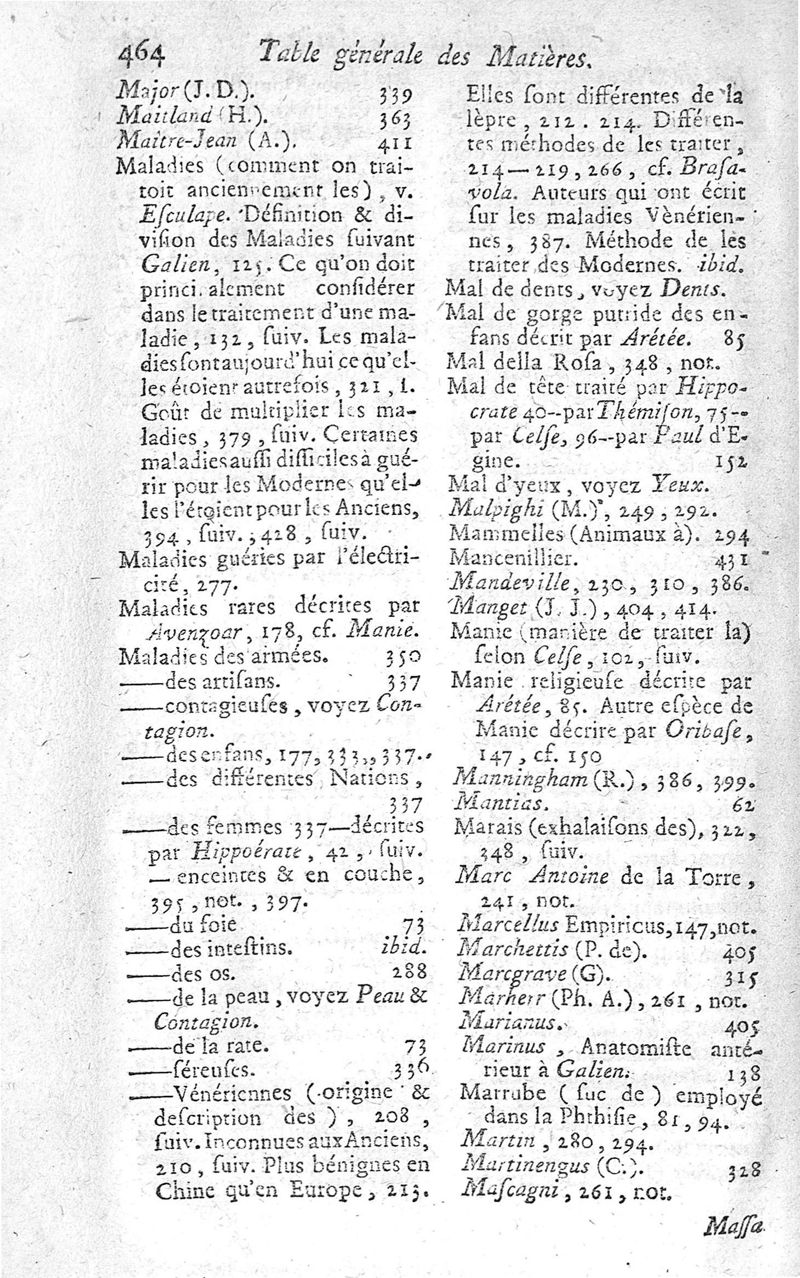 464 Table générale des Matières.
Major (J. D.). 339
Maitland (H.). 363
Maître-Jean (A.). 411
Maladies (comment on trai-
toit anciennement les), v.
Eſculape. Définition & di-
viſion des Maladies ſuivant
Galien, 125. Ce qu'on doit
princi. alement conſidérer
dans le traitement d'une ma-
ladie, 132, ſuiv. Les mala-
dies ſont aujourd'hui ce qu'el-
les étoient autrefois, 321, ſ.
Goût de multiplier les ma-
ladies, 379, ſuiv. Certaines
maladies auſſi difficiles à gué-
rir pour les Modernes qu'el-
les l'étoient pour les Anciens,
394, ſuiv.; 428, ſuiv.
Maladies guéries par l'électri-
cité, 277.
Maladies rares décrites par
Avenzoar, 178, cf. Manie.
Maladies des armées. 350
——des artiſans. 337
——contagieuſes, voyez Con-
tagion.
——des enfans, 177, 333,, 337.
——des différentes Nations,
337
——des femmes 337—décrites
par Hippocrate, 42, ſuiv.
— enceintes & en couche,
395, not., 397.
——du foie 73
——des inteſtins. ibid.
——des os. 288
——de la peau, voyez Peau &
Contagion.
——de la rate. 73
——ſéreuſes. 336
——Vénériennes (origine &
deſcription des), 208,
ſuiv. Inconnues aux Anciens,
210, ſuiv. Plus bénignes en
Chine qu'en Europe, 213.
Elles ſont différentes de la
lèpre, 212. 214. Différen-
tes méthodes de les traiter,
214—219, 266, cf. Braſa-
vola. Auteurs qui ont écrit
ſur les maladies Vènérien-
nes, 387. Méthode de les
traiter des Modernes. ibid.
Mal de dents, voyez Dents.
Mal de gorge putride des en-
fans décrit par Arétée. 85
Mal della Roſa, 348, not.
Mal de tête traité par Hippo-
crate 40--par Thémiſon, 75--
par Celſe, 96--par Paul d'E-
gine. 152
Mal d'yeux, voyez Yeux.
Malpighi (M.), 249, 292.
Mammelles (Animaux à). 294
Mancenillier. 431
Mandeville, 230, 310, 386.
Manget (J. J.), 404, 414.
Manie (manière de traiter la)
ſelon Celſe, 102, ſuiv.
Manie religieuſe décrite par
Arétée, 85. Autre eſpèce de
Manie décrire par Oribaſe,
147, cf. 150
Manningham (R.), 386, 399.
Mantias. 62
Marais (exhalaiſons des), 322,
348, ſuiv.
Marc Antoine de la Torre,
241, not.
Marcellus Empiricus, 147, not.
Marchettis (P. de). 405
Marcgrave (G). 315
Marherr (Ph. A.), 261, not.
Marianus. 405
Marinus, Anatomiſte anté-
rieur à Galien. 138
Marrube (ſuc de) employé
dans la Phthiſie, 81, 94.
Martin, 280, 294.
Martinengus (C.). 328
Maſcagni, 261, not.
Maſſa